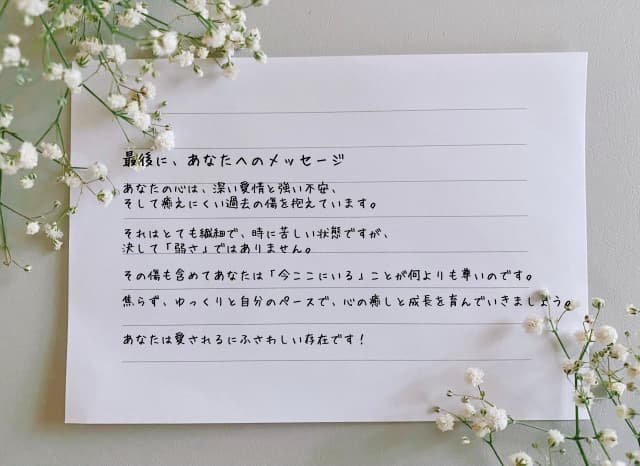 最後に、あなたへのメッセージ
あなたの心は、深い愛情と強い不安、
そして癒えにくい過去の傷を抱えています。
それはとても繊細で、時に苦しい状態ですが、
決して「弱さ」ではありません。
その傷も含めてあなたは「今ここにいる」ことが何よりも尊いのです。
焦らず、ゆっくりと自分のペースで、心の癒しと成長を育んでいきましょう。
あなたは愛されるにふさわしい存在です！